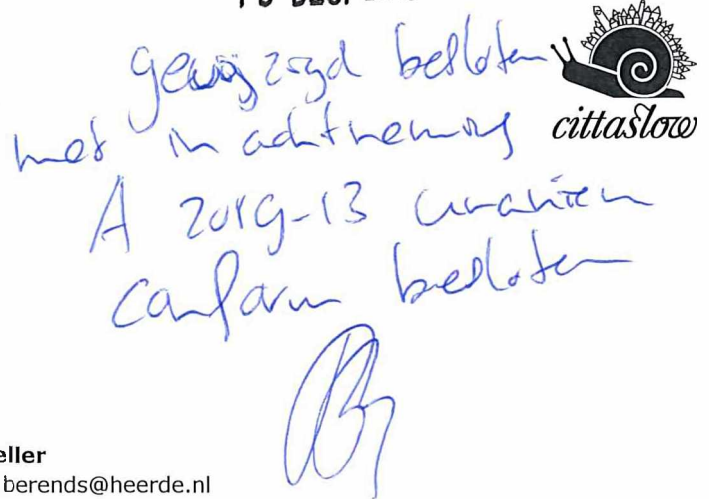 gewijzigd besloten
met in achtneming
A 2019-13 unaniem
conform besloten
cittaslow
eller
berends@heerde.nl